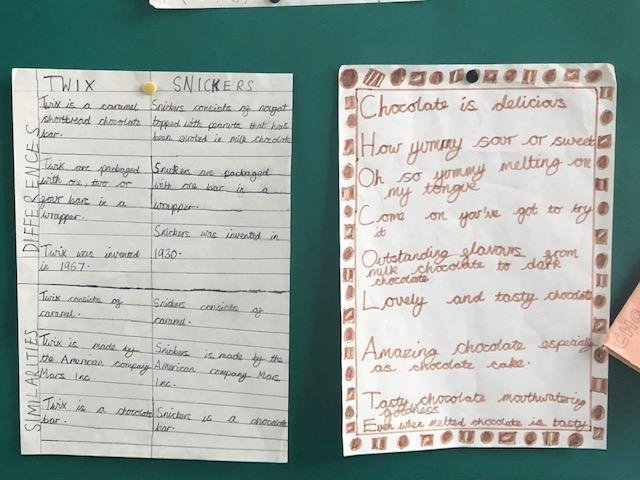 TWIX
SNICKERS
DIFFERENCES
Twix is a caramel
shortbread chocolate
bar.
Snickers consists of nougat
topped with peanuts that has
been coated in milk chocolate
Twix are packaged
with one, two or
four bars in a
wrapper.
Snickers are packaged
with one bar in a
wrapper.
Twix was invented
in 1967.
Snickers was invented in
1930.
SIMILARITIES
Twix consists of
caramel.
Snickers consists of
caramel.
Twix is made by
the American company
Mars Inc.
Snickers is made by the
American company Mars
Inc.
Twix is a chocolate
bar.
Snickers is a chocolate
bar.
Chocolate is delicious
How yummy sour or sweet
Oh so yummy melting on
my tongue
Come on you've got to try
it
Outstanding flavours from
milk chocolate to dark
chocolate
Lovely and tasty chocolate
Amazing chocolate especially
as chocolate cake.
Tasty chocolate mouthwatering
goodness
Even when melted chocolate is tasty